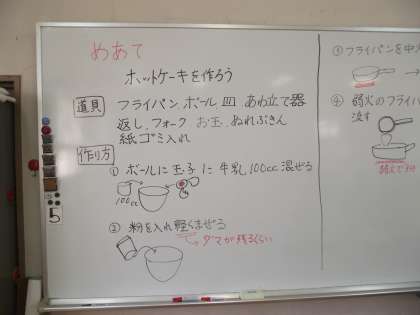 めあて
ホットケーキを作ろう
道具 フライパン、ボール 皿 あわ立て器
返し、フォーク お玉、ぬれぶきん
紙 ゴミ入れ
作り方
① ボールに玉子に牛乳100cc混ぜる
100cc
② 粉を入れ軽くまぜる
ダマが残るくらい
5
③ フライパンを中火
④ 弱火のフライパ
流す
弱火で3分